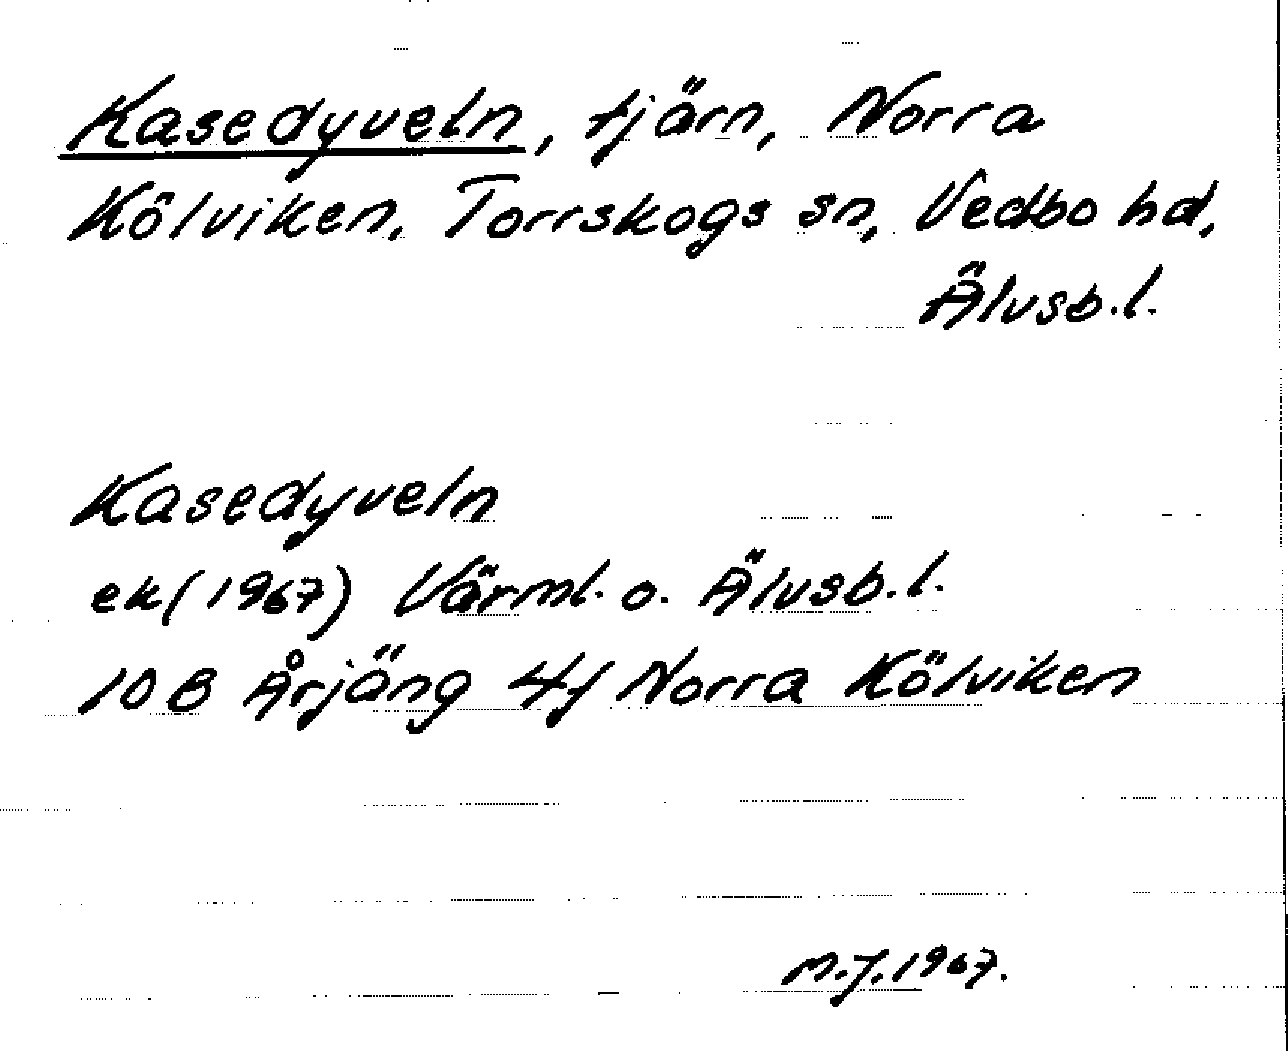 Kasedyveln, tjärn, Norra
Kölviken, Torrskogs sn, Vedbo hd,
Älvsb.l.
Kasedyveln
ek(1967) Värml. o. Älvsb.l.
10B Årjäng 4f Norra Kölviken
M.J.1967.